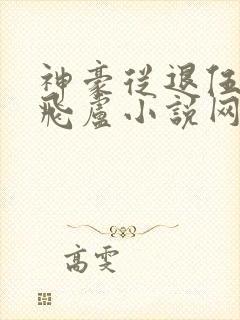 神豪从退伍
飞卢小说网
高雯